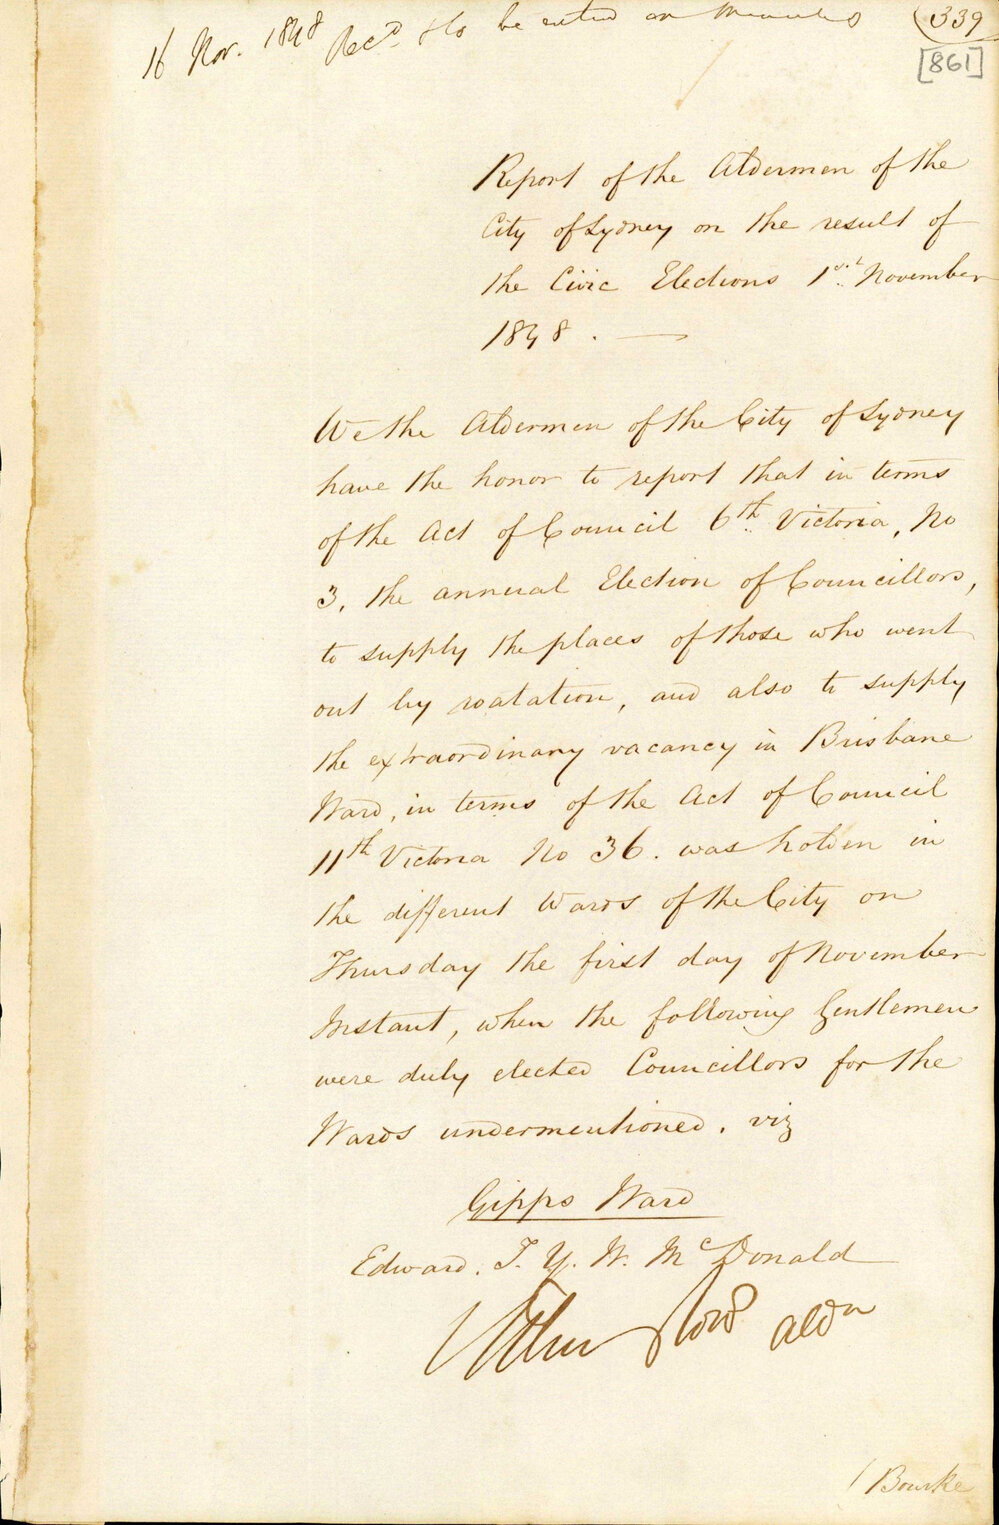 16 Nov. 1848 Recd & to be noted on Minutes 339
[861]
Report of the Aldermen of the
City of Sydney on the result of
the Civic Elections 1st November
1848. —
We the Aldermen of the City of Sydney
have the honor to report that in terms
of the Act of Council 6th Victoria, No
3, the annual Election of Councillors,
to supply the places of those who went
out by roatation, and also to supply
the extraordinary vacancy in Brisbane
Ward, in terms of the Act of Council
11th Victoria No 36. was holden in
the different Wards of the City on
Thursday the first day of November
Instant, when the following Gentlemen
were duly elected Councillors for the
Wards undermentioned. viz
Gipps Ward
Edward. T. Y. W. McDonald
Aldn
Bourke